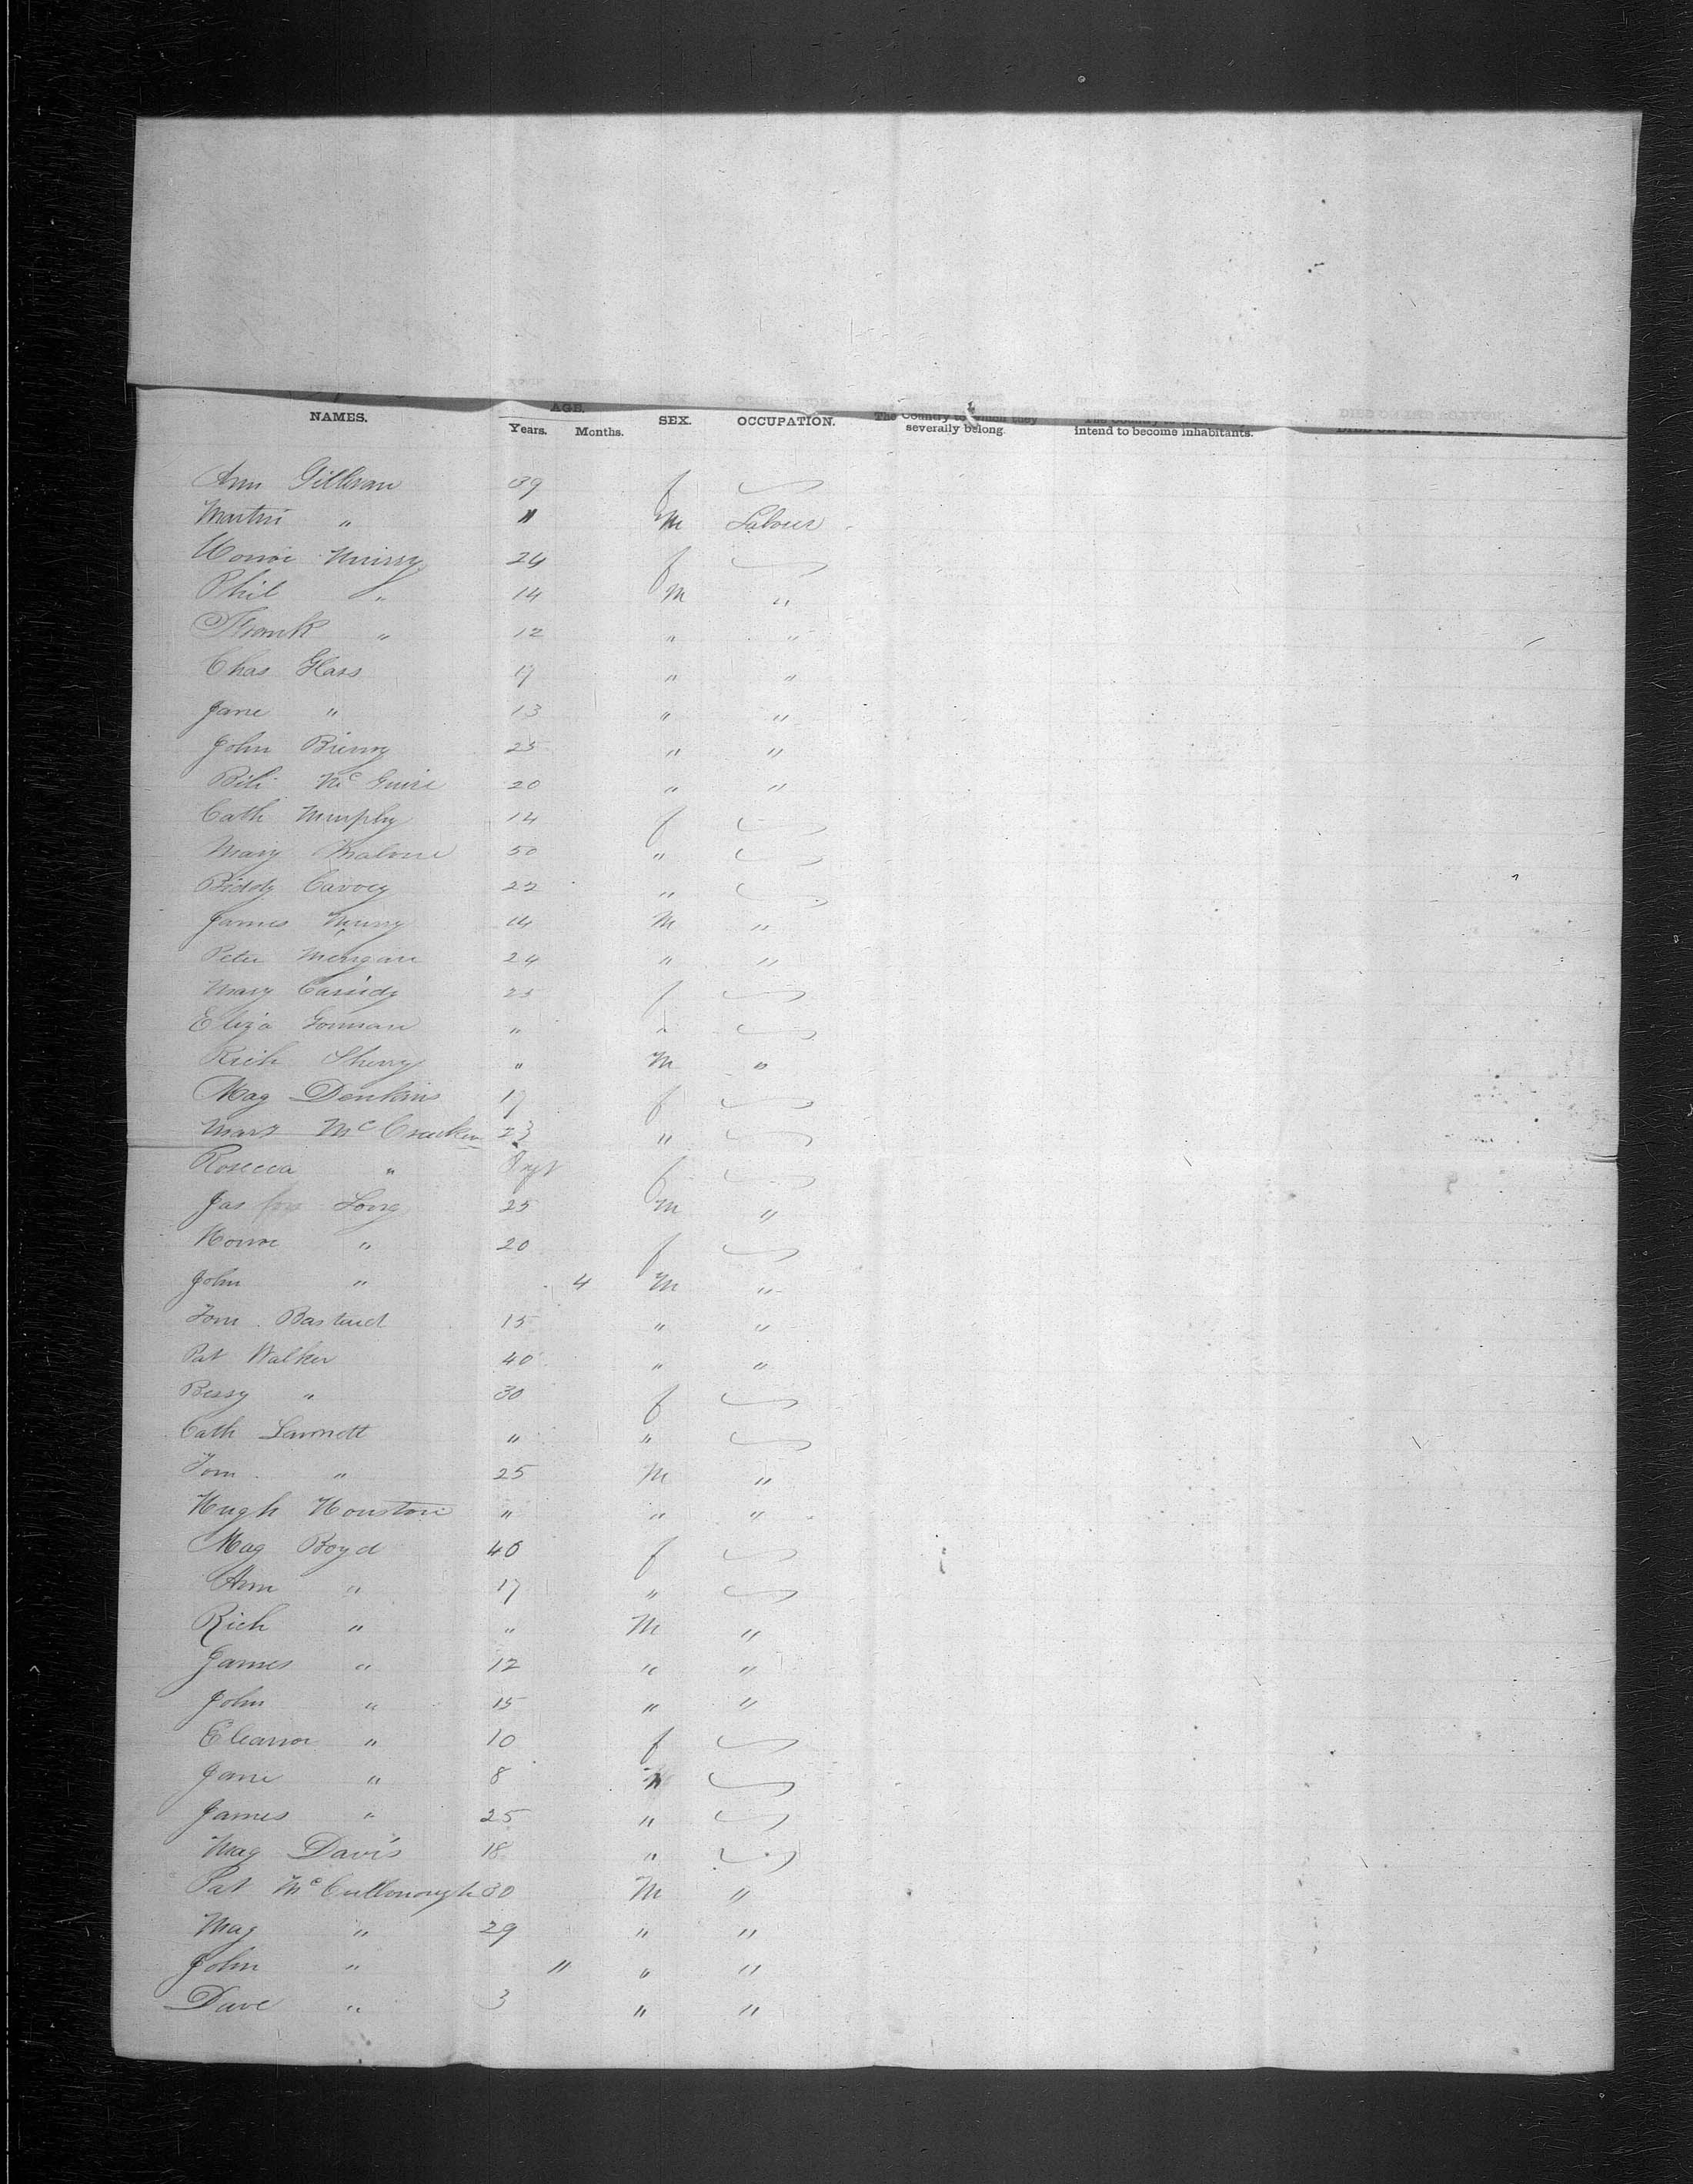 NAMES. AGE. Years. Months. SEX. OCCUPATION. The Country to which they severally belong. intend to become inhabitants.
Ann Gillivan 39 f
Martin " " M Labour
Honor 24 f
Phil " 14 M "
Frank " 12 " "
Chas Glass 17 " "
Jane " 13 " "
John 25 " "
Bili Mc Guire 20 " "
Cath Murphy 14 f
Mary Malone 50 "
Biddy 22 "
James 14 M "
Peter 24 " "
Mary Cassidy 25 f
Eliza Gorman " "
Rich Sherry " M "
Mag Denkins 17 f
Mary Mc Cracken 23 "
Rosecca " f
Jas Long 25 M "
Honor " 20 f
John " 4 M "
Tom 15 " "
Pat Walker 40 " "
Bessy " 30 f
Cath " "
Tom " 25 M "
Hugh Houston " " "
Mag Boyd 40 f
Ann " 17 "
Rich " " M "
James " 12 " "
John " 15 " "
Eleanor " 10 f
Jane " 8 "
James " 25 "
Mag Davis 18 "
Pat Mc Cullonough 30 M "
Mag " 29 " "
John " " " "
Dave " 3 " "